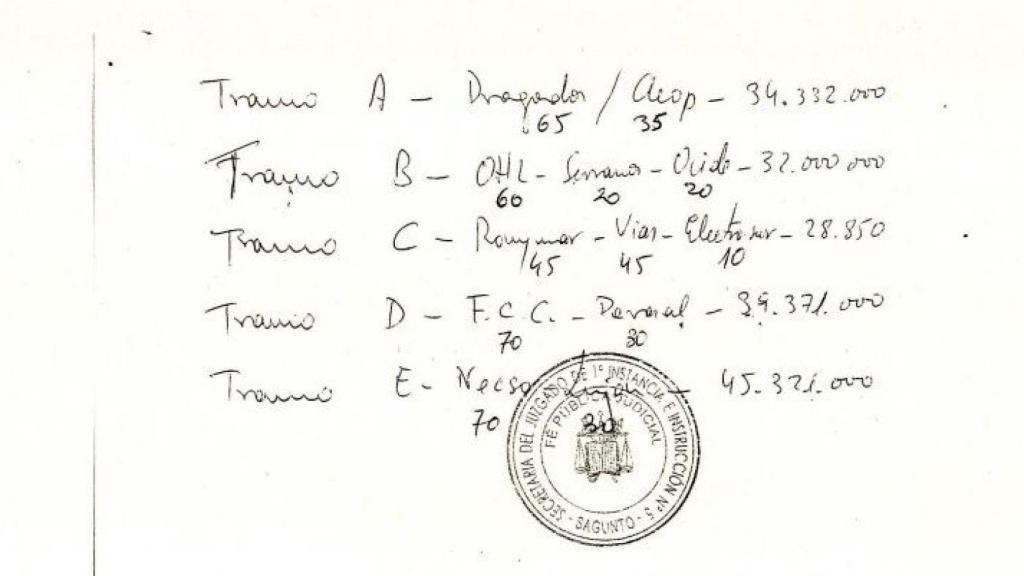 Tramo A - Dragados / Acop - 34.332.000
65 35
Tramo B - OHL - Serrano - - 32.000.000
60 20 20
Tramo C - Romymar - Vias - Electrosur - 28.850
45 45 10
Tramo D - F.C.C. - - 39.371.000
70 30
Tramo E - Necso - 45.321.000
70 30
SECRETARIA DEL JUZGADO DE 1ª INSTANCIA E INSTRUCCIÓN Nº 5
FÉ PUBLICA JUDICIAL
- SAGUNTO -